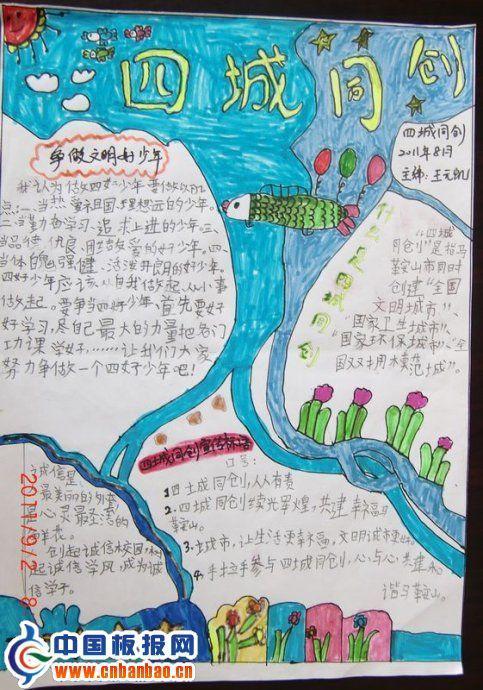 四城同创
四城同创
2011年8月
主编：王元凯
争做文明好少年
我认为做四好少年要做以几
点：一.当热爱祖国、理想远的少年。
二.当勤奋学习、追求上进的少年。三.
当品德优良、团结友爱的好少年。四.
当体魄强健、活泼开朗的好少年。
四好少年应该从自我做起从小事
做起。要争当四好少年首先要好
好学习，尽自己最大的力量把各门
功课学好，……让我们大家
努力争做一个四好少年吧！
什么是四城同创
“四城
同创”是指马
鞍山市同时
创建“全国
文明城市”、
“国家卫生城市”、
“国家环保城市”、“全
国双拥模范
城”。
四城同创宣传标语
口号：
1.四城同创，人人有责
2.四城同创续光辉煌，共建幸福马
鞍山。
3.城市，让生活更幸福，文明诚市更
4.手拉手参与四城同创，心与心共建和
谐马鞍山。
诚信是
最美丽的外套
是心灵最圣洁的
鲜花。
创起诚信校园，树
起诚信学风，成为诚
信学子。
2011/9/28
中国板报网
www.cnbanbao.cn